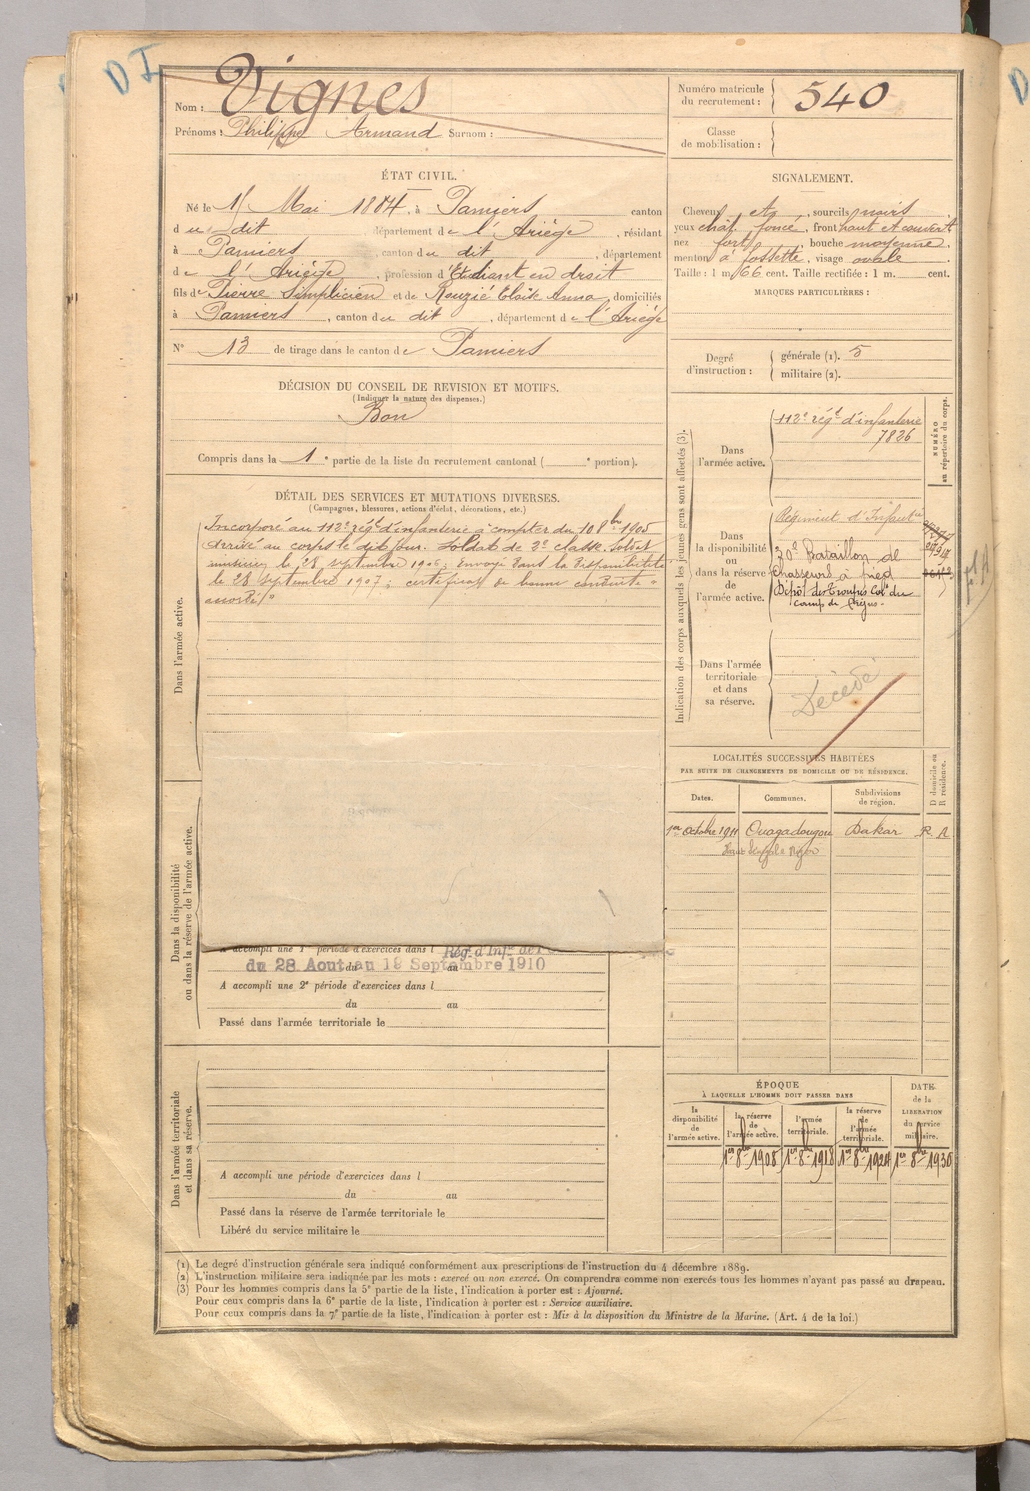 DI
Nom : Vignes
Prénoms : Philippe Armand Surnom :
Numéro matricule du recrutement : 540
Classe de mobilisation :
ÉTAT CIVIL.
Né le Mai 1884, à Pamiers canton
du dit, département de l'Ariège, résidant
à Pamiers, canton du dit, département
de l'Ariège, profession d'Etudiant en droit
fils de Pierre Simplicien et de Rouzié Eloïse Anna, domiciliés
à Pamiers, canton du dit, département de l'Ariège
N° 13 de tirage dans le canton de Pamiers
SIGNALEMENT.
Cheveux et, sourcils noirs
yeux chât. foncé, front haut et couvert
nez fort, bouche moyenne,
menton à fossette, visage ovale.
Taille : 1 m. 66 cent. Taille rectifiée : 1 m. cent.
MARQUES PARTICULIÈRES :
Degré d'instruction :
générale (1). 5
militaire (2).
DÉCISION DU CONSEIL DE REVISION ET MOTIFS.
(Indiquer la nature des dispenses.)
Bon
Compris dans la 1e partie de la liste du recrutement cantonal ( e portion).
DÉTAIL DES SERVICES ET MUTATIONS DIVERSES.
(Campagnes, blessures, actions d'éclat, décorations, etc.)
Dans l'armée active.
Incorporé au 112e régt d'infanterie à compter du 10 8bre 1905
arrivé au corps le dit jour. Soldat de 2e classe. Soldat
musicien le 28 septembre 1906; envoyé dans la disponibilité
le 28 septembre 1907; certificat de bonne conduite
accordé
Indication des corps auxquels les jeunes gens sont affectés (3).
NUMÉRO au répertoire du corps.
Dans l'armée active.
112e régt d'infanterie
7826
Dans la disponibilité ou dans la réserve de l'armée active.
Régiment d'Infant
30e Bataillon de
Chasseurs à pied
Dépôt des Troupes Col. du
camp de Fréjus
Dans l'armée territoriale et dans sa réserve.
Décédé
LOCALITÉS SUCCESSIVES HABITÉES
PAR SUITE DE CHANGEMENTS DE DOMICILE OU DE RÉSIDENCE.
Dates. Communes. Subdivisions de région. D domicile ou R résidence.
1er Octobre 1911 Ouagadougou Dakar R
Haut Sénégal Niger
Dans la disponibilité ou dans la réserve de l'armée active.
A accompli une 1e période d'exercices dans l Rég. d'Inf.
du 28 Aout au 19 Septembre 1910
A accompli une 2e période d'exercices dans l
du au
Passé dans l'armée territoriale le
Dans l'armée territoriale et dans sa réserve.
A accompli une période d'exercices dans l
du au
Passé dans la réserve de l'armée territoriale le
Libéré du service militaire le
ÉPOQUE
À LAQUELLE L'HOMME DOIT PASSER DANS
DATE de la LIBÉRATION du service militaire.
la disponibilité de l'armée active.
la réserve de l'armée active.
l'armée territoriale.
la réserve de l'armée territoriale.
1er 8bre 1908 1er 8bre 1918 1er 8bre 1924 1er 8bre 1930
(1) Le degré d'instruction générale sera indiqué conformément aux prescriptions de l'instruction du 4 décembre 1889.
(2) L'instruction militaire sera indiquée par les mots : exercé ou non exercé. On comprendra comme non exercés tous les hommes n'ayant pas passé au drapeau.
(3) Pour les hommes compris dans la 5e partie de la liste, l'indication à porter est : Ajourné.
Pour ceux compris dans la 6e partie de la liste, l'indication à porter est : Service auxiliaire.
Pour ceux compris dans la 7e partie de la liste, l'indication à porter est : Mis à la disposition du Ministre de la Marine. (Art. 4 de la loi.)